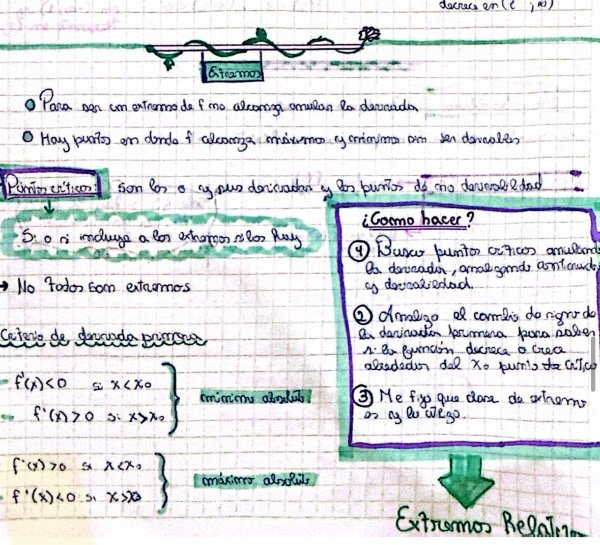 decrece en (e , ∞)
Extremos
Para ser un extremo de f no alcanza anular la derivada
Hay puntos en donde f alcanza máximo y mínimo sin ser derivables
Puntos críticos: son los 0 de sus derivadas y los puntos de no derivabilidad
Si o si incluye a los extremos si los hay
→ No todos son extremos
Criterio de derivada primera
f'(x)<0 si x<x₀
f'(x)>0 si x>x₀
mínimo absoluto
f'(x)>0 si x<x₀
f'(x)<0 si x>x₀
máximo absoluto
¿Como hacer?
① Busco puntos críticos anulando
la derivada, analizando continuidad
y derivabilidad.
② Analizo el cambio de signo de
la derivada primera para saber
si la función decrece o crece
alrededor del x₀ punto crítico
③ Me fijo que clase de extremo
es y lo
Extremos Relativos